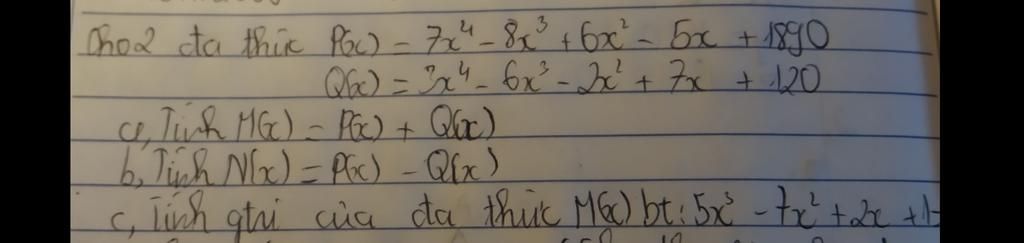 Cho 2 đa thức P(x) = 7x⁴ - 8x³ + 6x² - 5x + 1890
Q(x) = 3x⁴ - 6x³ - 2x² + 7x + 120
a, Tính M(x) = P(x) + Q(x)
b, Tính N(x) = P(x) - Q(x)
c, Tính gtri của đa thức M(x) bt: 5x³ - 7x² + 2x + 1